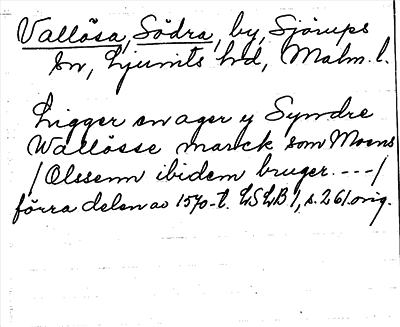 Vallösa, Södra, by, Sjörups
sn, Ljunits hd, Malm. l.
Ligger en ager y Syndre
Wallösse marck som Moens
/ Olssenn ibidem bruger. --- /
förra delen av 1570-t. LSLB 1, s. 261. orig.